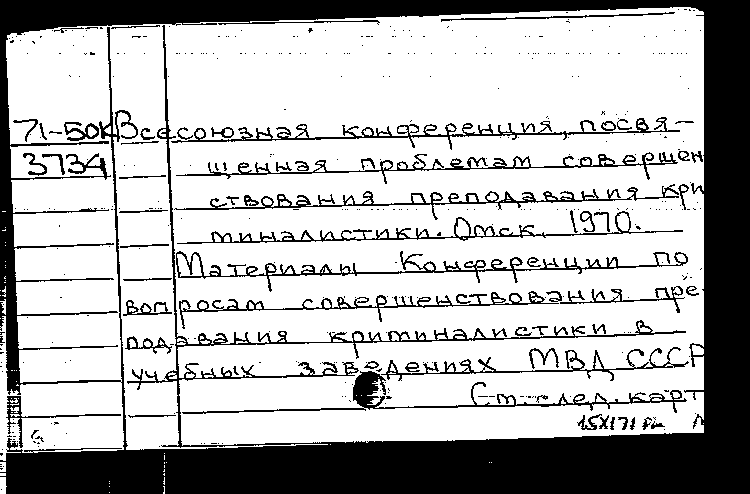 71-50к Всесоюзная конференция, посвя-
3734 щенная проблемам совершен
ствования преподавания кри
миналистики. Омск, 1970.
Материалы Конференции по
вопросам совершенствования пре
подавания криминалистики в
учебных заведениях МВД СССР
См. след. карт
15XI71